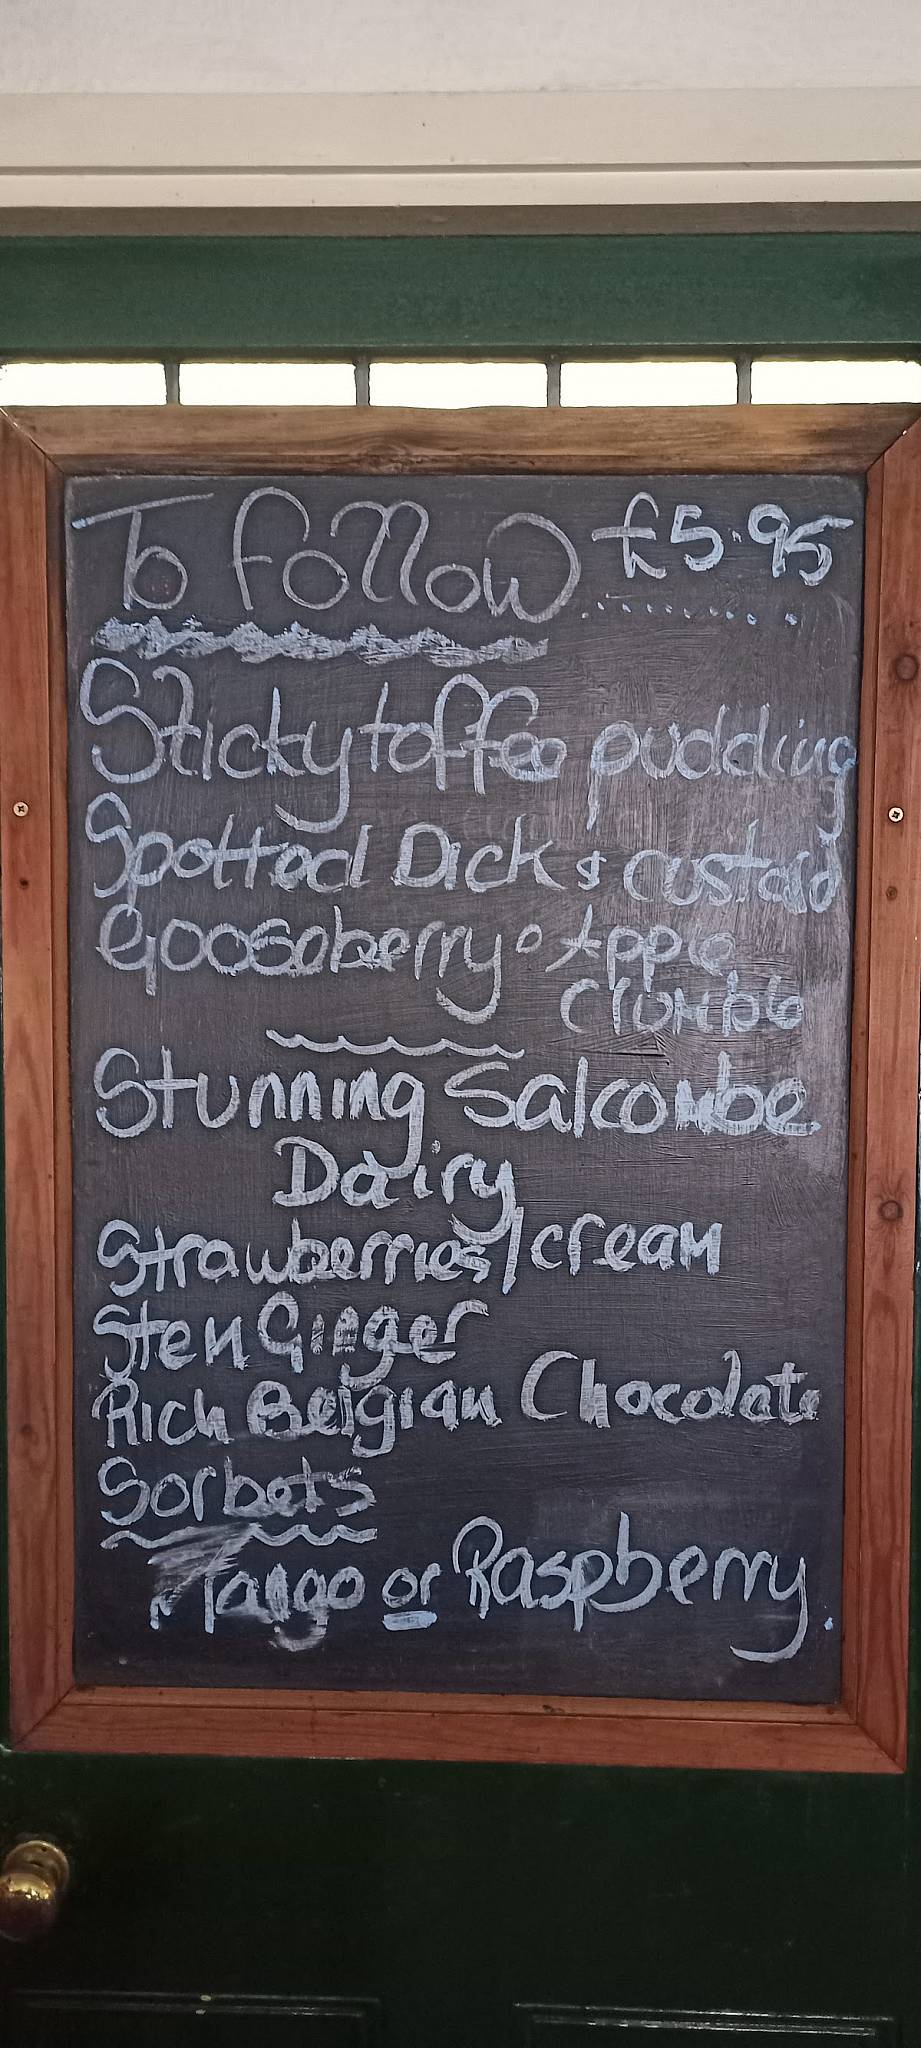 To follow £5.95
Sticky toffee pudding
Spotted Dick & custard
Gooseberry & Apple
Crumble
Stunning Salcombe
Dairy
Strawberries/cream
Stem Ginger
Rich Belgian Chocolate
Sorbets
Mango or Raspberry.